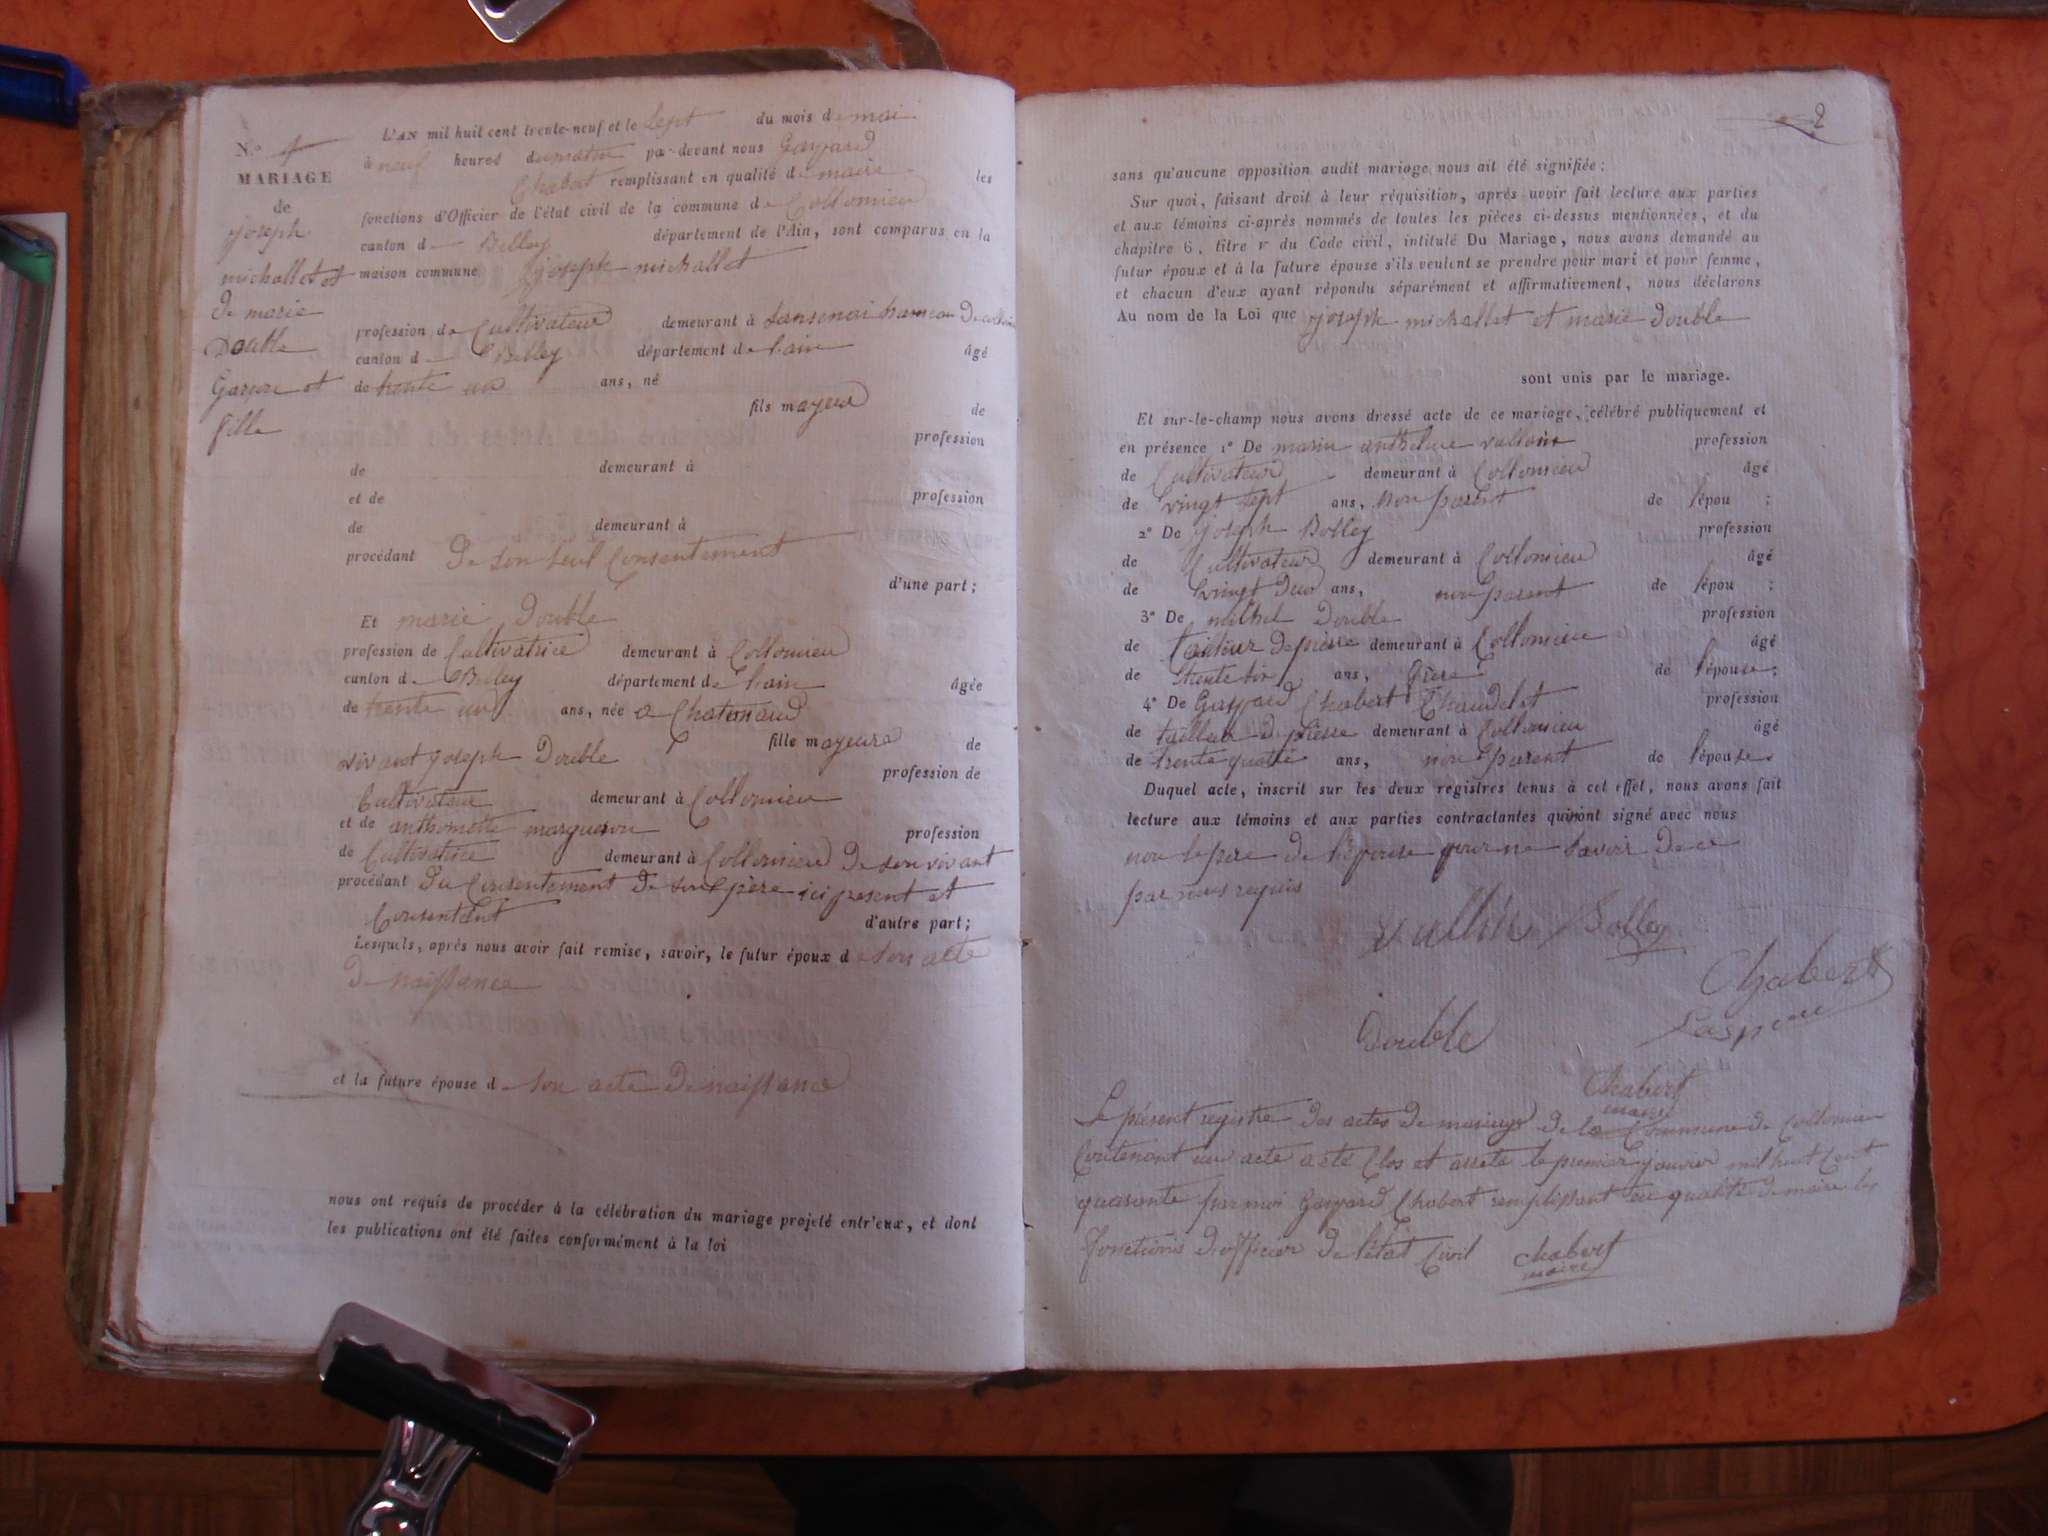 N.º 1
MARIAGE
de
joseph
michallet et
De marie
Double
Garçon et
fille
L'AN mil huit cent trente-neuf et le Sept du mois de mai
à neuf heures du matin par-devant nous Gaspard
Chabert remplissant en qualité de maire les
fonctions d'Officier de l'état civil de la commune de Collomieu
canton de Belley département de l'Ain, sont comparus en la
maison commune joseph michallet
profession de Cultivateur demeurant à hameau De
canton de Belley département de lain âgé
de trente un ans, né
fils mayeur de
profession
de demeurant à
et de profession
de demeurant à
procédant De son seul Consentement
d'une part ;
Et marie Double
profession de Cultivatrice demeurant à Collomieu
canton de Belley département de lain âgée
de trente un ans, née a
fille mayeure de
vivant joseph Double profession de
Cultivateur demeurant à Collomieu
et de profession
de Cultivatrice demeurant à Collomieu De son vivant
procédant Du Consentement De son père ici present et
Consentant d'autre part ;
Lesquels, après nous avoir fait remise, savoir, le futur époux de son acte
De naissance
et la future épouse de son acte De naissance
nous ont requis de procéder à la célébration du mariage projeté entr'eux, et dont
les publications ont été faites conformément à la loi
2
sans qu'aucune opposition audit mariage nous ait été signifiée :
Sur quoi, faisant droit à leur réquisition, après avoir fait lecture aux parties
et aux témoins ci-après nommés de toutes les pièces ci-dessus mentionnées, et du
chapitre 6, titre v du Code civil, intitulé Du Mariage, nous avons demandé au
futur époux et à la future épouse s'ils veulent se prendre pour mari et pour femme,
et chacun d'eux ayant répondu séparément et affirmativement, nous déclarons
Au nom de la Loi que joseph michallet et marie Double
sont unis par le mariage.
Et sur-le-champ nous avons dressé acte de ce mariage, célébré publiquement et
en présence 1º De marin anthelme profession
de Cultivateur demeurant à Collomieu âgé
de vingt sept ans, non parent de l'épou ;
2º De joseph Bolley profession
de Cultivateur demeurant à Collomieu âgé
de vingt Deux ans, non parent de l'épou ;
3º De michel Double profession
de tailleur De pierre demeurant à Collomieu âgé
de trente six ans, frère de l'épouse ;
4º De Gaspard Chabert profession
de tailleur De pierre demeurant à Collomieu âgé
de trente quatre ans, non parent de l'épouse
Duquel acte, inscrit sur les deux registres tenus à cet effet, nous avons fait
lecture aux témoins et aux parties contractantes qui ont signé avec nous
non le père De l'épouse pour ne savoir De ce
par nous requis
Bolley
Chabert
Double
Chabert
maire
Le présent registre Des actes De mariage De la Commune De Collomieu
Contenant un acte a été Clos et arrêté le premier janvier mil huit Cent
quarante par moi Gaspard Chabert remplissant en qualité De maire les
fonctions D'officier De l'état Civil Chabert
maire